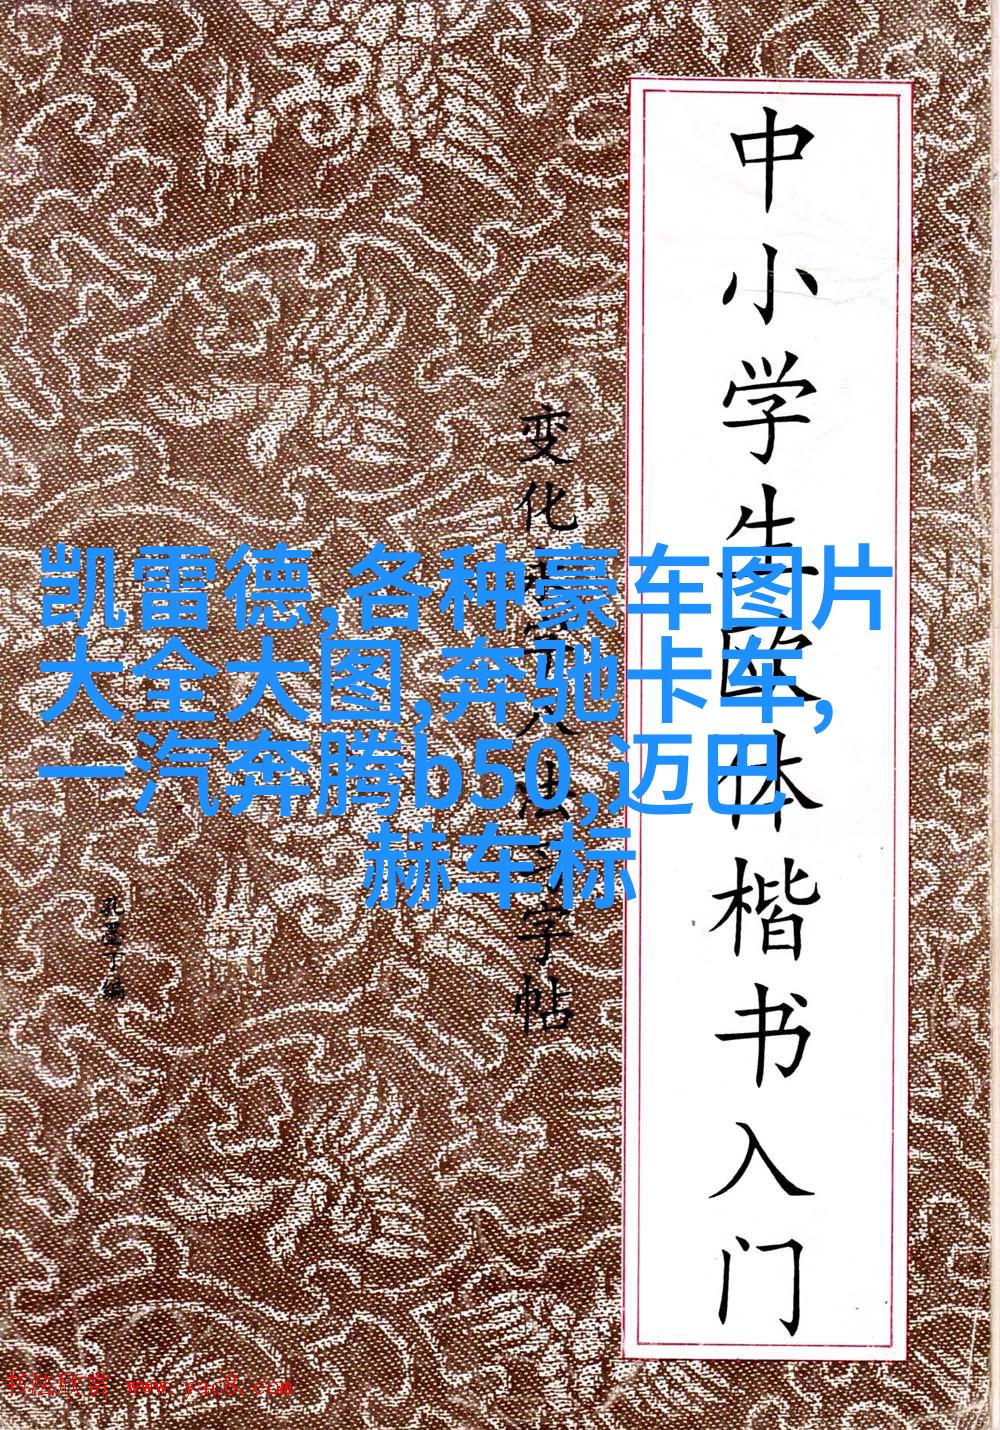 中小学生欧体楷书入门
变化字八法习字帖
孔墨丁编
凯雷德,各种豪车图片
大全大图,奔驰卡车,
一汽奔腾b50,迈巴
赫车标
书法欣赏 www.yac8.com